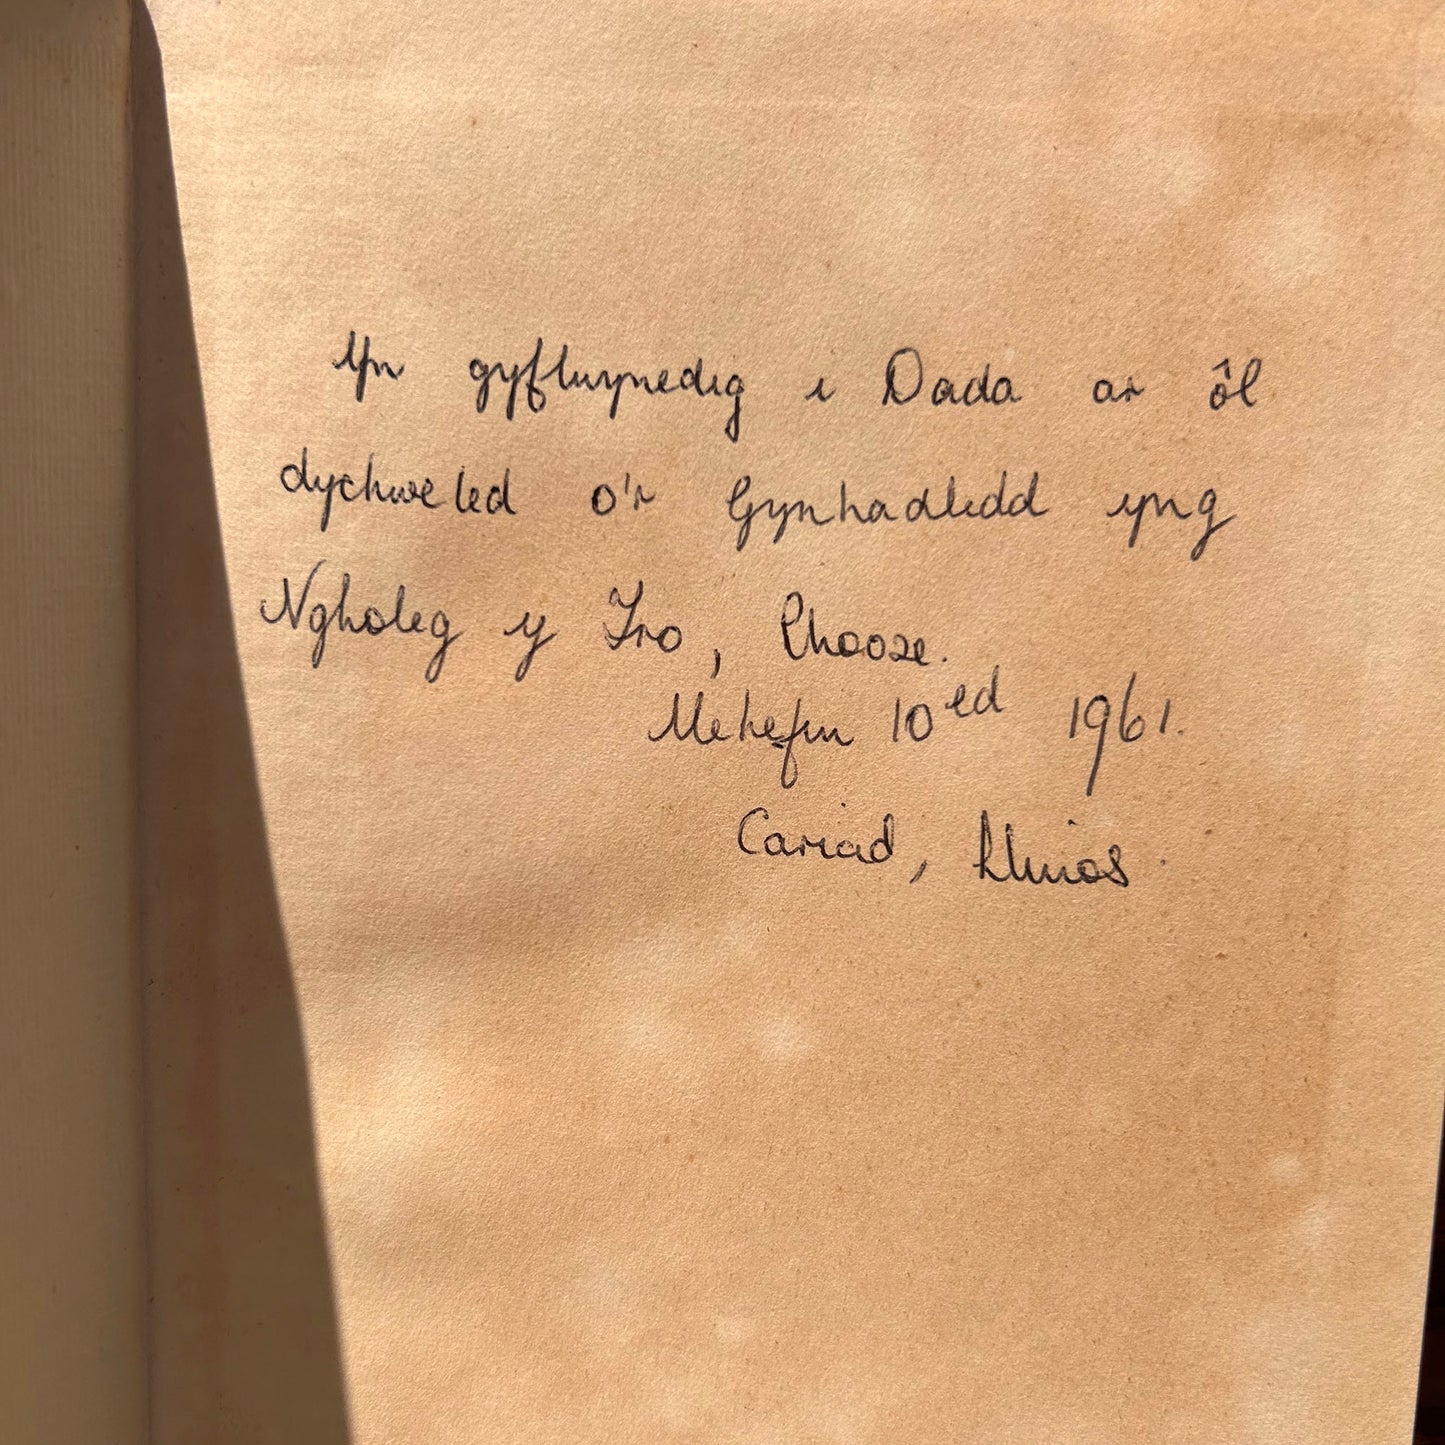 Yn gyflwynedig i Dada ar ôl
dychweled o'r Gynhadledd yng
Ngholeg y Fro, Rhoose.
Mehefin 10ed 1961.
Cariad, Llinos.